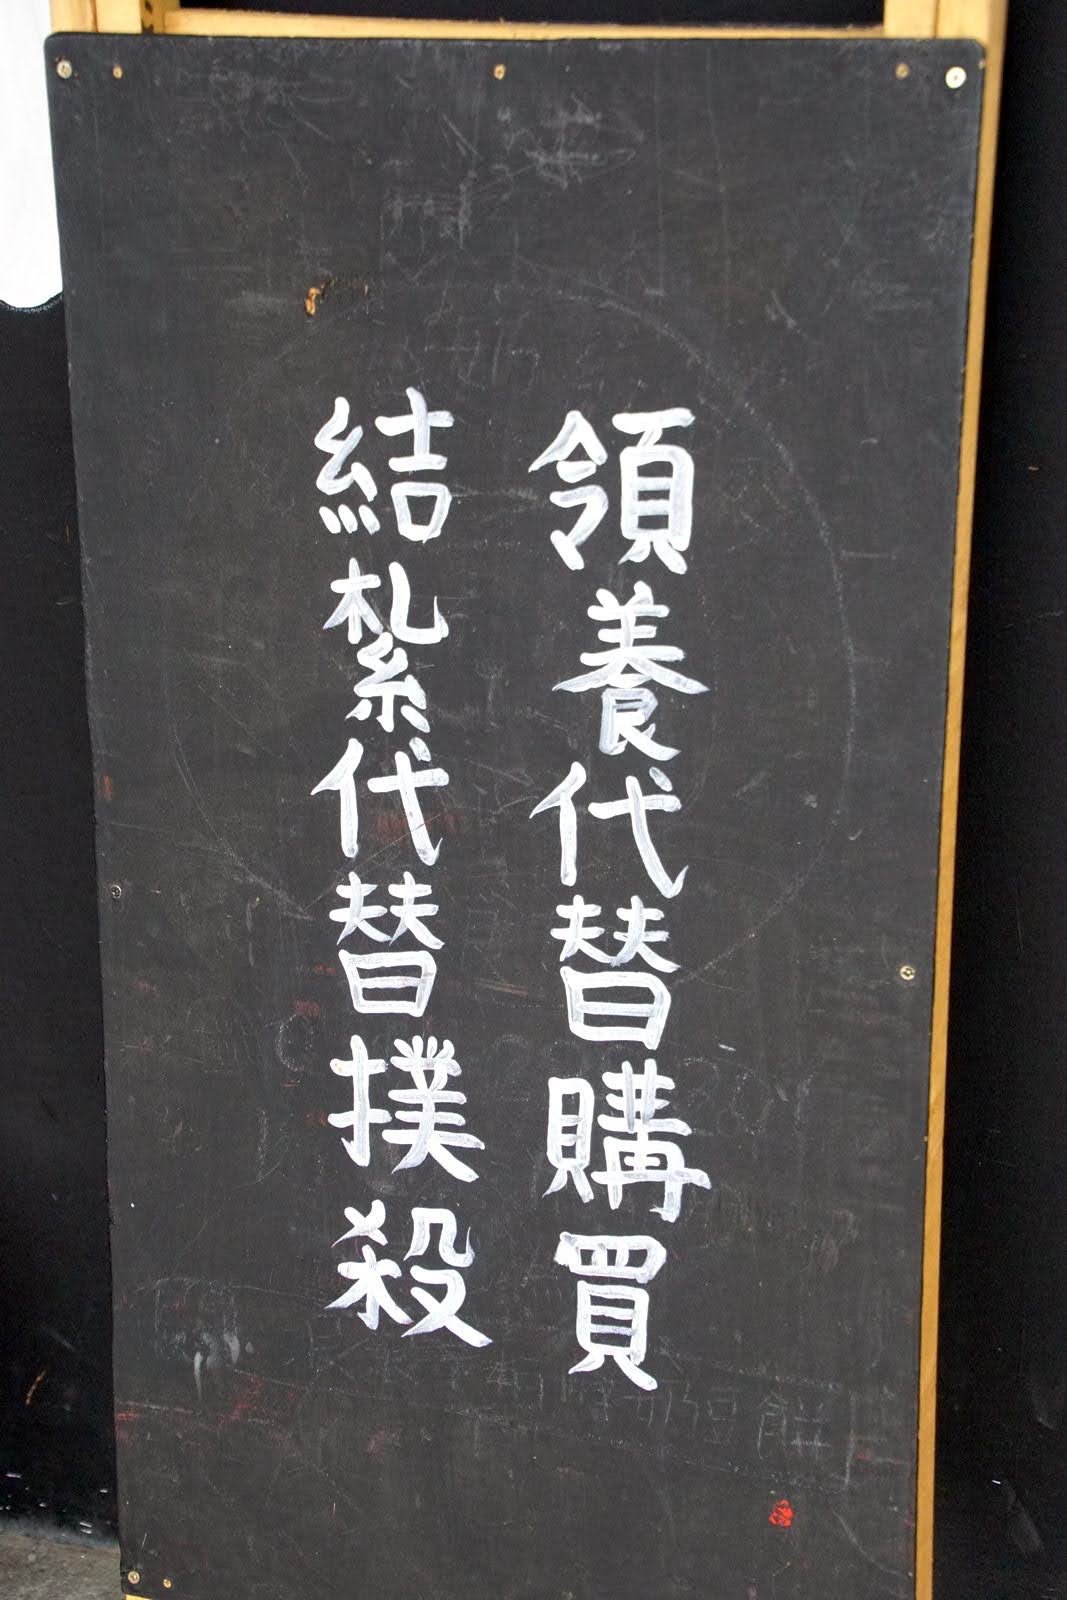 領養代替購買
結紮代替撲殺